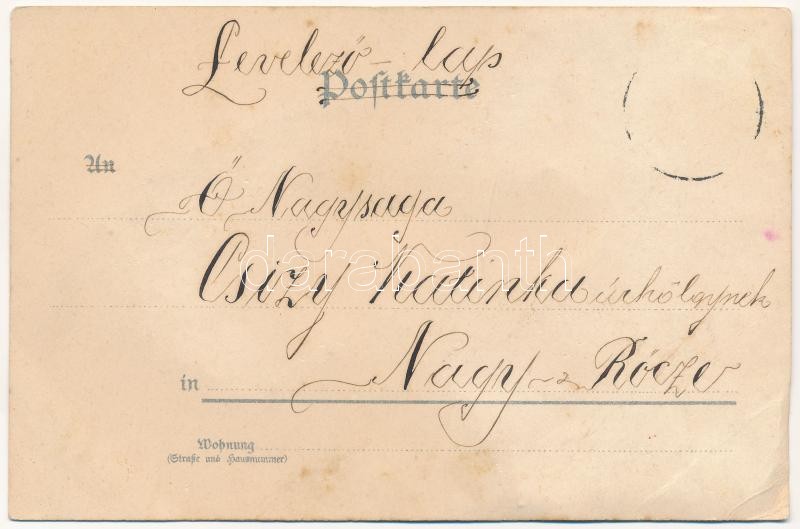 Levelező-lap
Postkarte
An
Ő Nagysaga
Csizy Katinka úrhölgynek
darabanth
in Nagy-Rőcze
Wohnung
(Straße und Hausnummer)